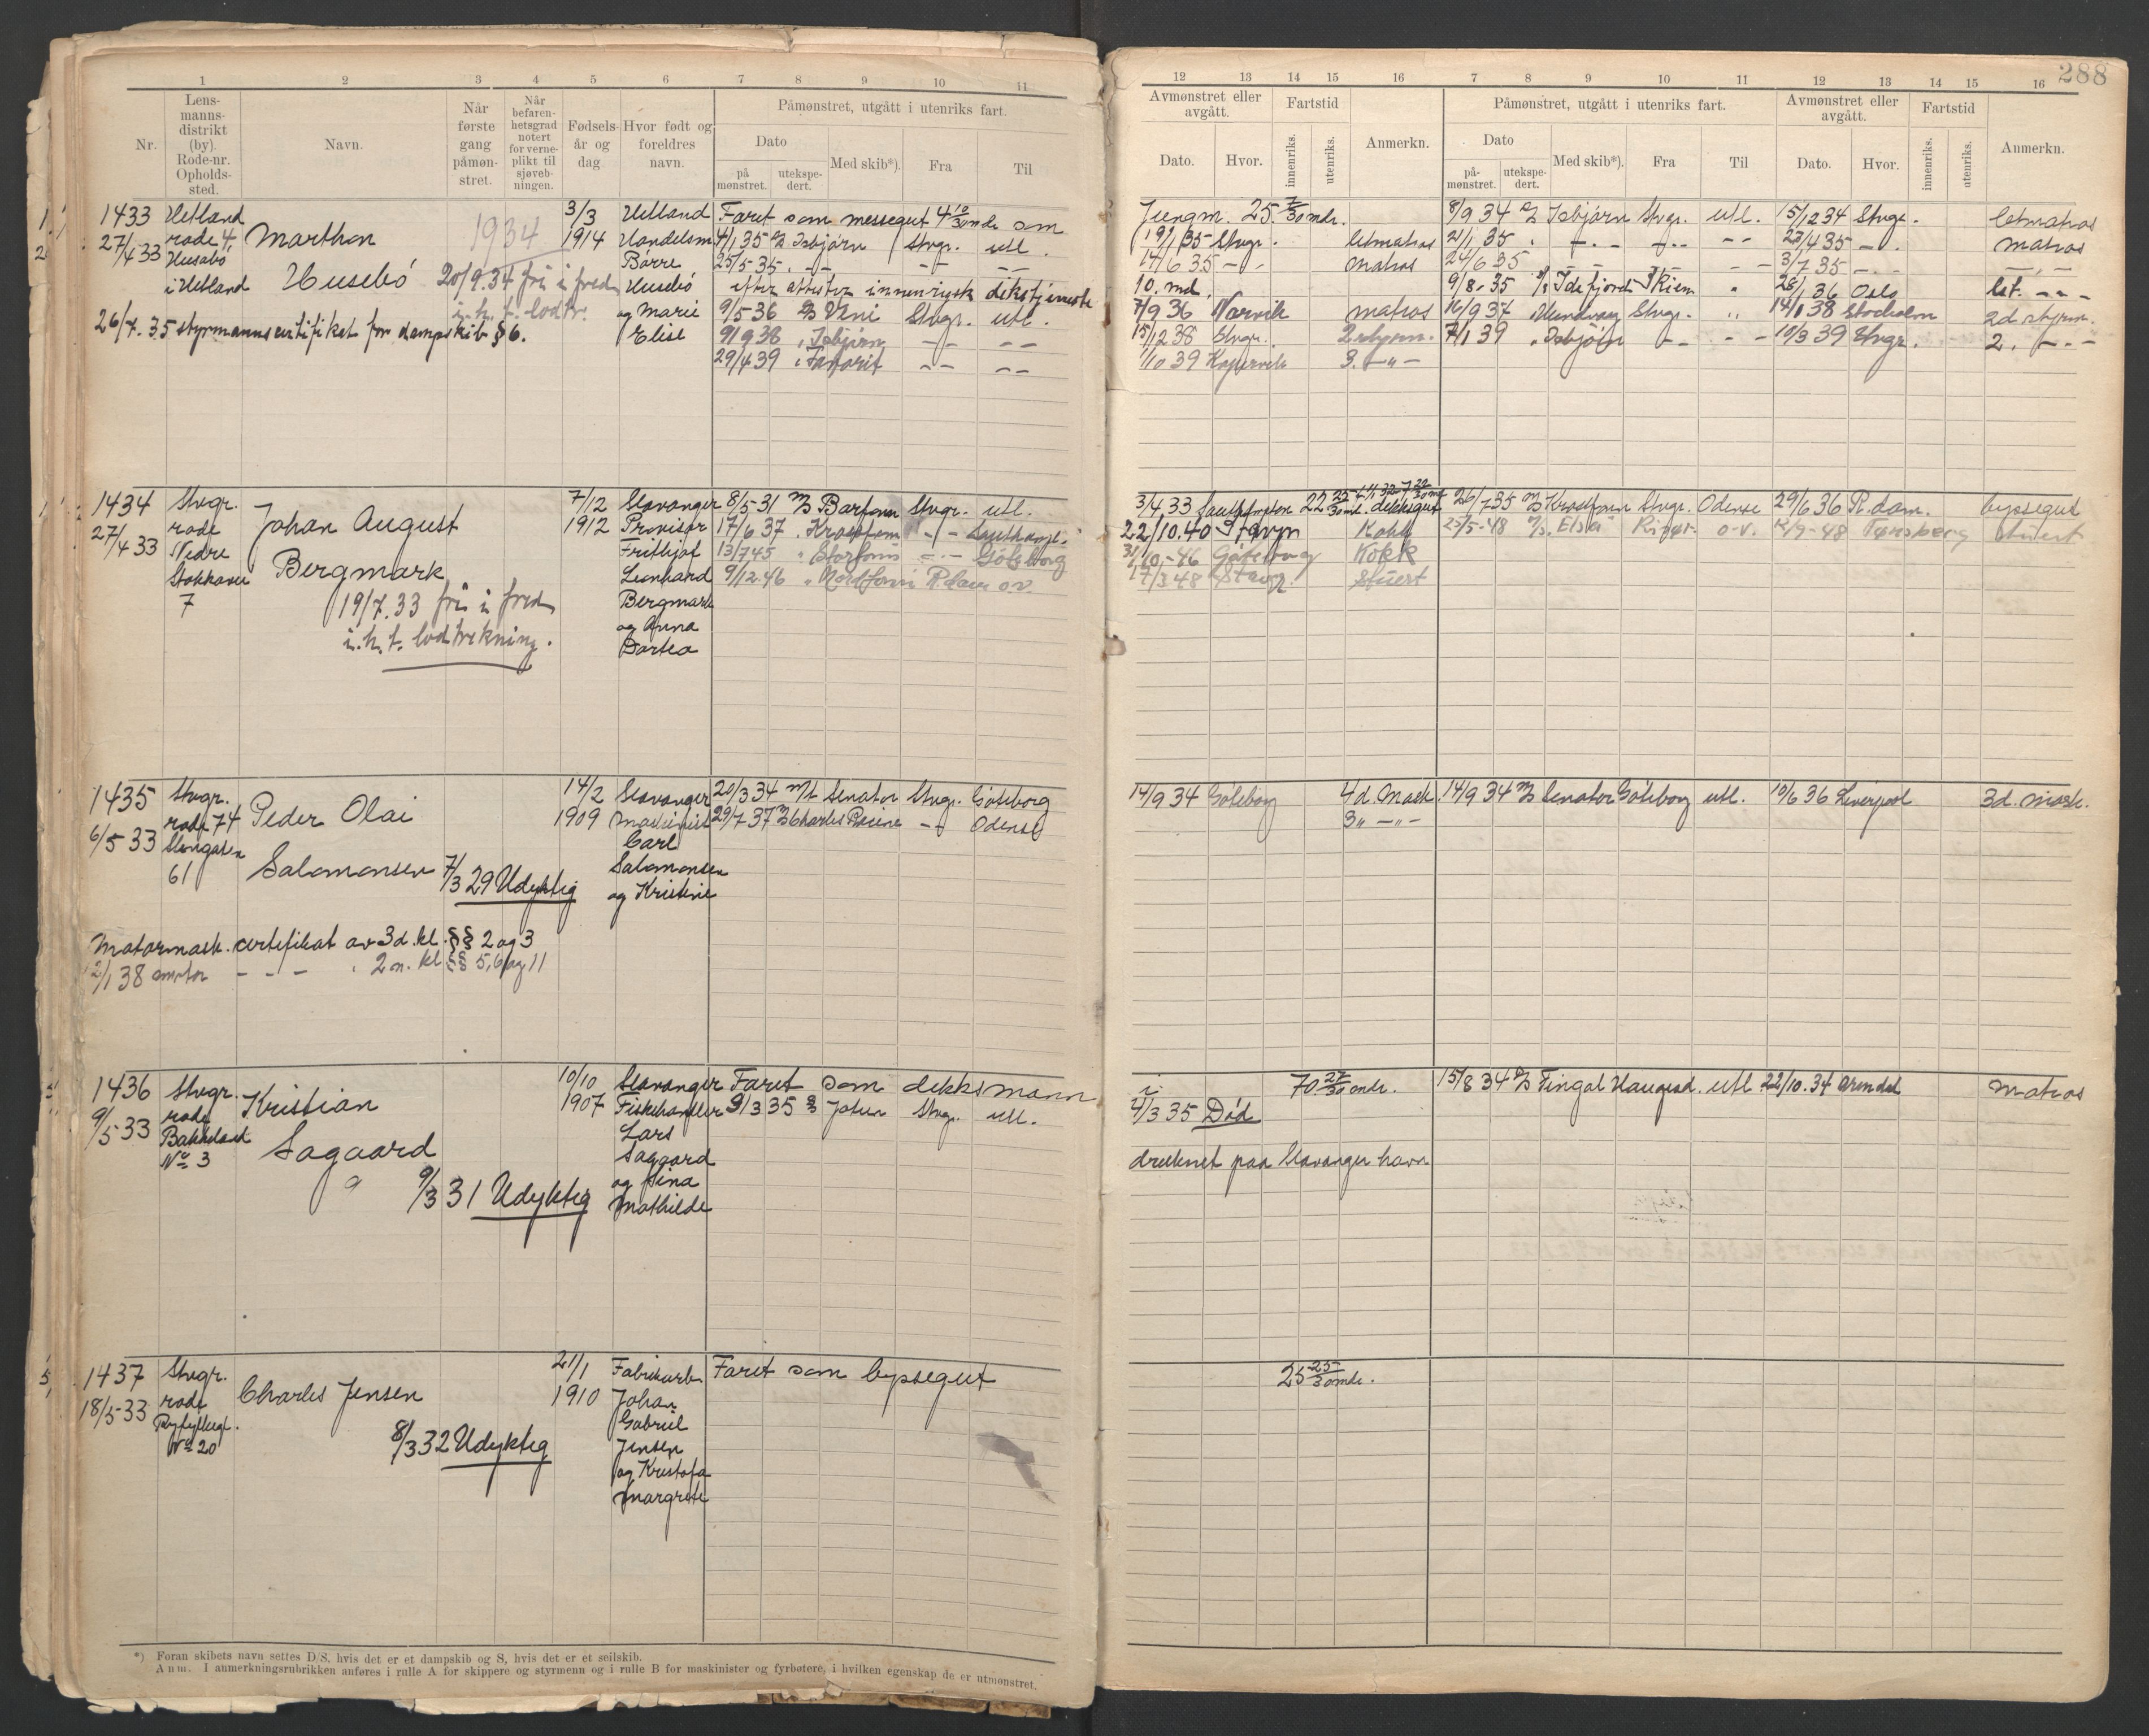 288
1 2 3 4 5 6 7 8 9 10 11
12 13 14 15 16 7 8 9 10 11 12 13 14 15 16
Nr.
Lens-
manns-
distrikt
(by).
Rode-nr.
Opholds-
sted.
Navn.
Når
første
gang
påmøn-
stret.
Når
befaren-
hetsgrad
notert
for verne-
plikt til
sjøveb-
ningen.
Fødsels-
år og
dag
Hvor født og
foreldres
navn.
Påmønstret, utgått i utenriks fart.
Dato
på
mønstret.
utekspe-
dert.
Med skib*).
Fra
Til
Avmønstret eller
avgått.
Dato.
Hvor.
Fartstid
innenriks.
utenriks.
Anmerkn.
Påmønstret, utgått i utenriks fart.
Dato
på-
mønstret.
utekspe-
dert.
Med skib*).
Fra
Til
Avmønstret eller
avgått.
Dato.
Hvor.
Fartstid
innenriks.
utenriks.
Anmerkn.
1433
27/4 33
Hetland
rode 4.
Husabö
i Hetland
Marthon
Husebö
1934
20/9.34 fri i fred
i. h. t. lodtr.
26/7. 35 styrmannscertifikat for dampskib § 6.
3/3
1914
Hetland
Handelsm
Börre
Husebö
og Marie
Elise
Faret som messegut 4 10/30 mdr som
4/1 35 D/S Isbjörn Stvgr. utl.
25/5-35 " - - - - - -
efter attester innenriksk dekstjeneste
9/5-36 D/S Veni Stvgr. utl.
9/9 38 " Isbjörn - - - -
29/4 39 " Favorit - - - -
Jungm. 25 7/30 mdr.
19/1 35 Stvgr. letmatros
14/6 35 - - matros
10. md.
7/9 36 Narvik matros
15/12 38 Stvgr. 2 styrm.
1/10 39 Kopervik 3. - " -
8/9 34 D/S Isbjörn Stvgr. utl. 15/12 34 Stvgr. letmatros
21/1 35 " - " - - " - - - 23/4 35 - " - matros
24/6 35 - - - - 3/7 35 - " - - " -
9/8. 35 D/S Idefjord Skien " 28/1 36 Oslo let. - " -
16/9 37 " Hundvaag Stvgr. " 14/1 38 Stockholm 2d styrm.
7/1 39 " Isbjörn - - - - 10/3 39 Stvgr. 2. - " -
1434
27/4 33
Stvgr.
rode
Nedre
Stokkavei
7
Johan August
Bergmark
19/7. 33 fri i fred
i. h. t. lodtrekning.
7/12
1912
Stavanger
Provisør
Frithjof
Leonhard
Bergmark
og Anna
Dortea
8/5-31 M/S Barfonn Stvgr. utl.
17/6 37 " Krossfonn - " - Southampt.
13/7 45 " Storfonn - " - Göteborg
9/12.46 " Nordfonn R.dam o.v.
3/4 33 Southampton dekksgut
22/10.40 Stavgr Kokk
31/10-46 Göteborg Kokk
17/3 48 Stavgr. Stuert
26/7 35 M/S Krossfonn Stvgr. Odense 29/6 36 R.dam. byssegut
25/5-48 Elsa Risør o.v. 12/9-48 Tønsberg stuert
1435
6/5 33
Stvgr.
rode 74
61
Peder Olai
Salomonsen
7/3 29 Udyktig
Motormask. certifikat av 3d. kl. §§ 2 og 3
12/1 38 - - - " 2n. kl §§ 5, 6 og 11
14/2
1909
Stavanger
Maskinist
Carl
Salomonsen
og Kristine
20/3 34 M/t Senator Stvgr. Göteborg
29/7 37 M/S Charles Racine - " - Odense
14/9 34 Göteborg 4d. Mask.
3 " - " -
14/9 34 M/S Senator Göteborg utl. 10/6 36 Liverpool 3d. mask.
1436
9/5 33
Stvgr.
rode
Bakkeland
No 3
Kristian
Sagaard
9/3 31 Udyktig
10/10
1907
Stavanger
Fiskehandler
Lars
Sagaard
og Sina
Mathilde
Faret som dekksmann
9/3 35 D/S Jotun Stvgr. utl.
i 70 27/30 mdr.
4/3 35 Död
druknet paa Stavanger havn
15/8 34 D/S Fingal Haugesd. utl 22/10. 34 Arendal matros
1437
18/5-33
Stvgr.
rode
Ryfylkegt.
No 20
Charles Jensen
8/3 32 Udyktig
21/1
1910
Fabrikarb.
Johan
Gabriel
Jensen
og Kristofa
Margrete
Faret som byssegut
25 25/30 mdr.
*) Foran skibets navn settes D/S, hvis det er et dampskib og S, hvis det er et seilskib.
Anm. I anmerkningsrubrikken anføres i rulle A for skippere og styrmenn og i rulle B for maskinister og fyrbøtere, i hvilken egenskap de er utmønstret.